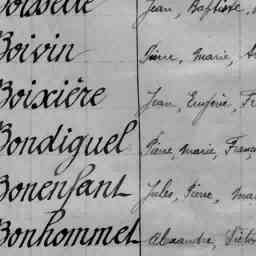 Jean, Baptiste,
Boivin Pierre, Marie,
Boixière Jean, Eugène, Fr
Bondiguel Pierre, Marie, Franç
Bonenfant Jules, Pierre, Ma
Bonhommet Alexandre, Victor